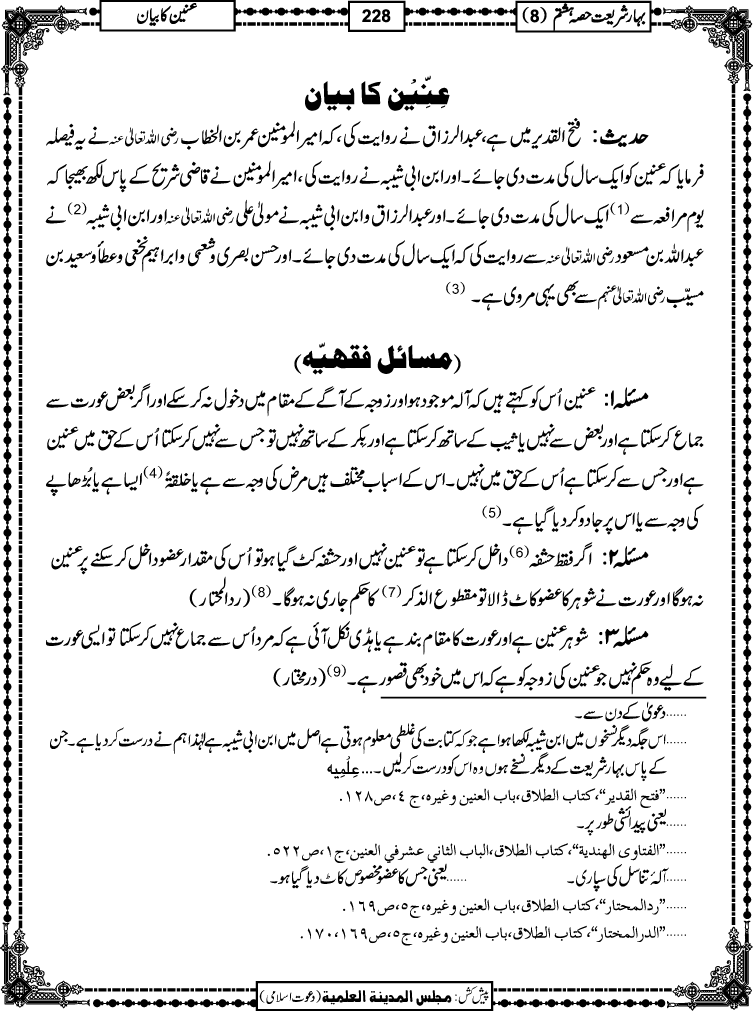 بہار شریعت حصہ ہشتم (8)
228
عنین کا بیان
عِنِّیْن کا بیان
حدیث: فتح القدیر میں ہے، عبدالرزاق نے روایت کی، کہ امیر المومنین عمر بن الخطاب رضی اللہ تعالیٰ عنہ نے یہ فیصلہ
فرمایا کہ عنین کو ایک سال کی مدت دی جائے۔ اور ابن ابی شیبہ نے روایت کی، امیر المومنین نے قاضی شریح کے پاس لکھ بھیجا کہ
یوم مرافعہ سے (1) ایک سال کی مدت دی جائے۔ اور عبدالرزاق و ابن ابی شیبہ نے مولیٰ علی رضی اللہ تعالیٰ عنہ اور ابن ابی شیبہ (2) نے
عبداللہ بن مسعود رضی اللہ تعالیٰ عنہ سے روایت کی کہ ایک سال کی مدت دی جائے۔ اور حسن بصری و شعبی و ابراہیم نخعی و عطا و سعید بن
مسیّب رضی اللہ تعالیٰ عنہم سے بھی یہی مروی ہے۔ (3)
(مسائل فقھیّہ)
مسئلہ ۱: عنین اُس کو کہتے ہیں کہ آلہ موجود ہو اور زوجہ کے آگے کے مقام میں دخول نہ کر سکے اور اگر بعض عورت سے
جماع کر سکتا ہے اور بعض سے نہیں یا ثیب کے ساتھ کر سکتا ہے اور بکر کے ساتھ نہیں تو جس سے نہیں کر سکتا اُس کے حق میں عنین
ہے اور جس سے کر سکتا ہے اُس کے حق میں نہیں۔ اس کے اسباب مختلف ہیں مرض کی وجہ سے ہے یا خلقۃً (4) ایسا ہے یا بُڑھاپے
کی وجہ سے یا اس پر جادو کر دیا گیا ہے۔ (5)
مسئلہ ۲: اگر فقط حشفہ (6) داخل کر سکتا ہے تو عنین نہیں اور حشفہ کٹ گیا ہو تو اُس کی مقدار عضو داخل کر سکنے پر عنین
نہ ہوگا اور عورت نے شوہر کا عضو کاٹ ڈالا تو مقطوع الذکر (7) کا حکم جاری نہ ہوگا۔ (8) (ردالمحتار)
مسئلہ ۳: شوہر عنین ہے اور عورت کا مقام بند ہے یا ہڈی نکل آئی ہے کہ مرد اُس سے جماع نہیں کر سکتا تو ایسی عورت
کے لیے وہ حکم نہیں جو عنین کی زوجہ کو ہے کہ اس میں خود بھی قصور ہے۔ (9) (درمختار)
......دعویٰ کے دن سے۔
......اس جگہ دیگر نسخوں میں ابن شیبہ لکھا ہوا ہے جو کہ کتابت کی غلطی معلوم ہوتی ہے اصل میں ابن ابی شیبہ ہے لہٰذا ہم نے درست کر دیا ہے۔ جن
کے پاس بہار شریعت کے دیگر نسخے ہوں وہ اس کو درست کر لیں۔...عِلْمِیہ
......”فتح القدیر“، کتاب الطلاق، باب العنین وغیرہ، ج ٤، ص ١٢٨.
......یعنی پیدائشی طور پر۔
......”الفتاوی الھندیة“، کتاب الطلاق، الباب الثاني عشر في العنین، ج١، ص٥٢٢.
......آلۂ تناسل کی سپاری۔ ......یعنی جس کا عضو مخصوص کاٹ دیا گیا ہو۔
......”ردالمحتار“، کتاب الطلاق، باب العنین وغیرہ، ج٥، ص١٦٩.
......”الدرالمختار“، کتاب الطلاق، باب العنین وغیرہ، ج٥، ص١٦٩، ١٧٠.
پیش کش: مجلس المدینة العلمیة (دعوت اسلامی)